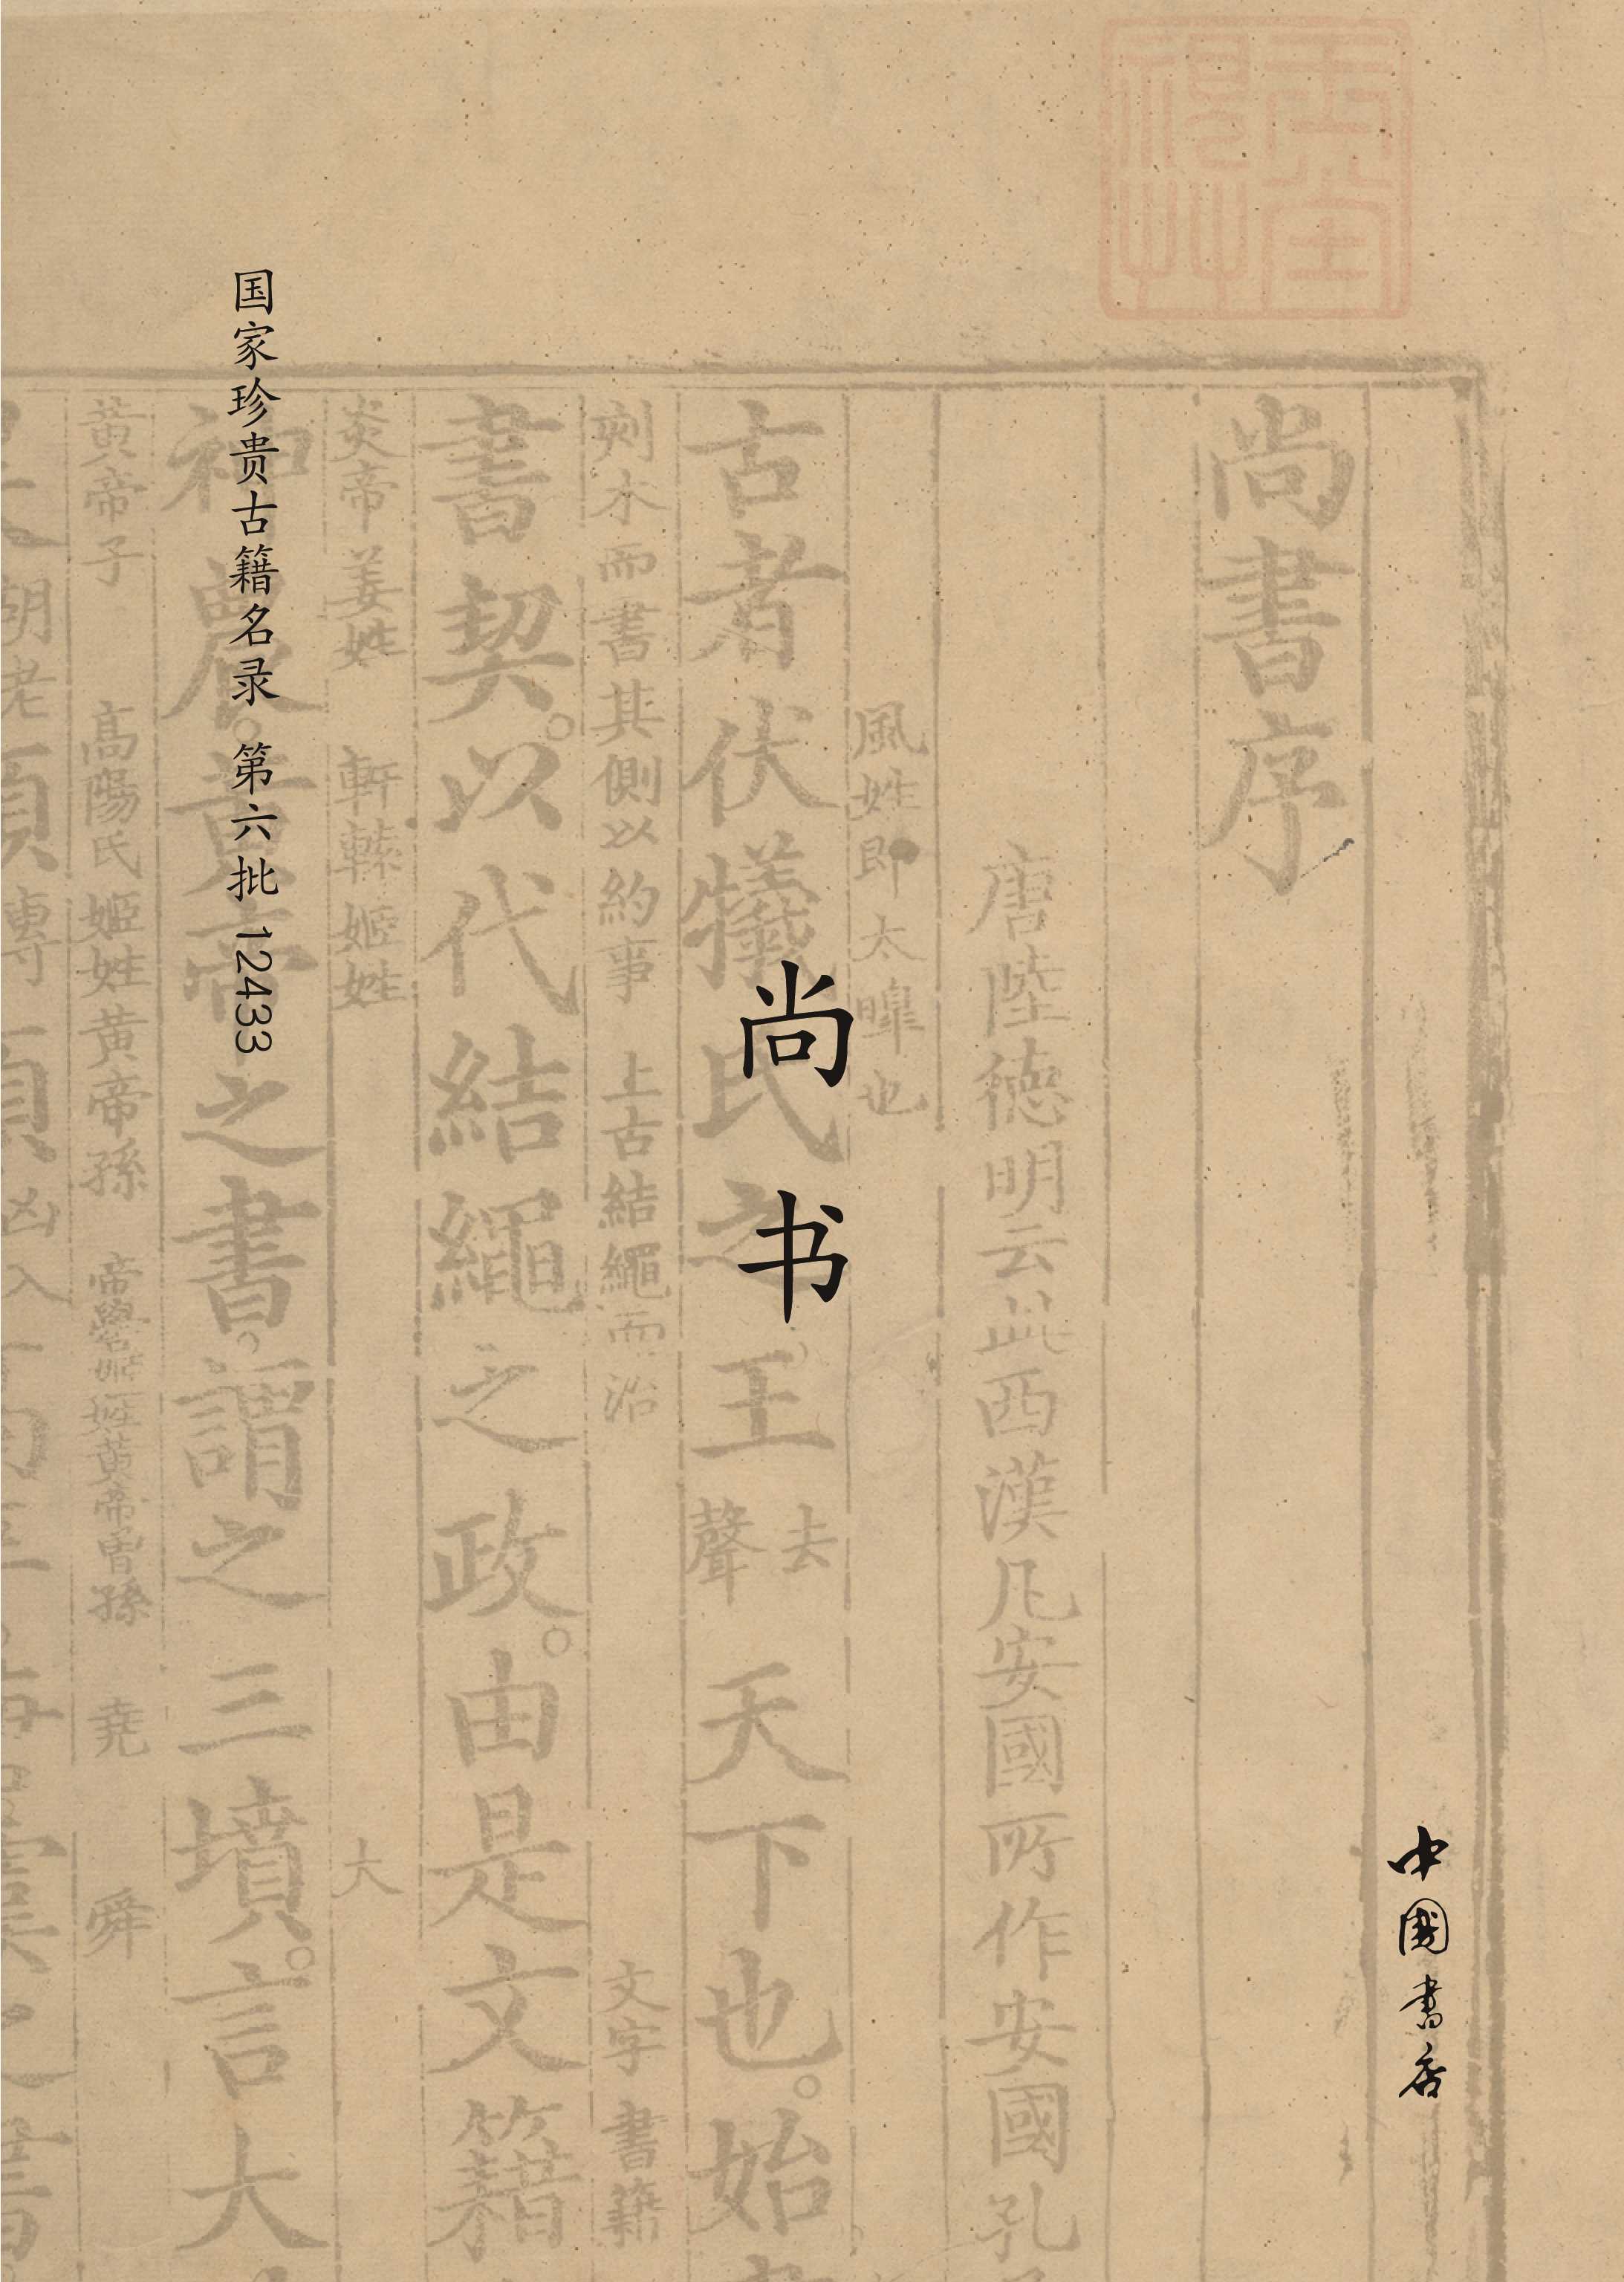 国家珍贵古籍名录 第六批 12433
尚书
中國書店
尚書序
唐陸德明云此西漢孔安國所作安國孔
風姓即太皥也
古者伏犧氏之王去聲天下也。始
刻木而書其側以約事 上古結繩而治 文字書籍
書契。以代結繩之政。由是文籍
炎帝姜姓 軒轅姬姓 大
神農。黃帝之書。謂之三墳。言大
黃帝子 高陽氏姬姓黃帝孫 帝嚳姬姓黃帝曾孫 堯 舜